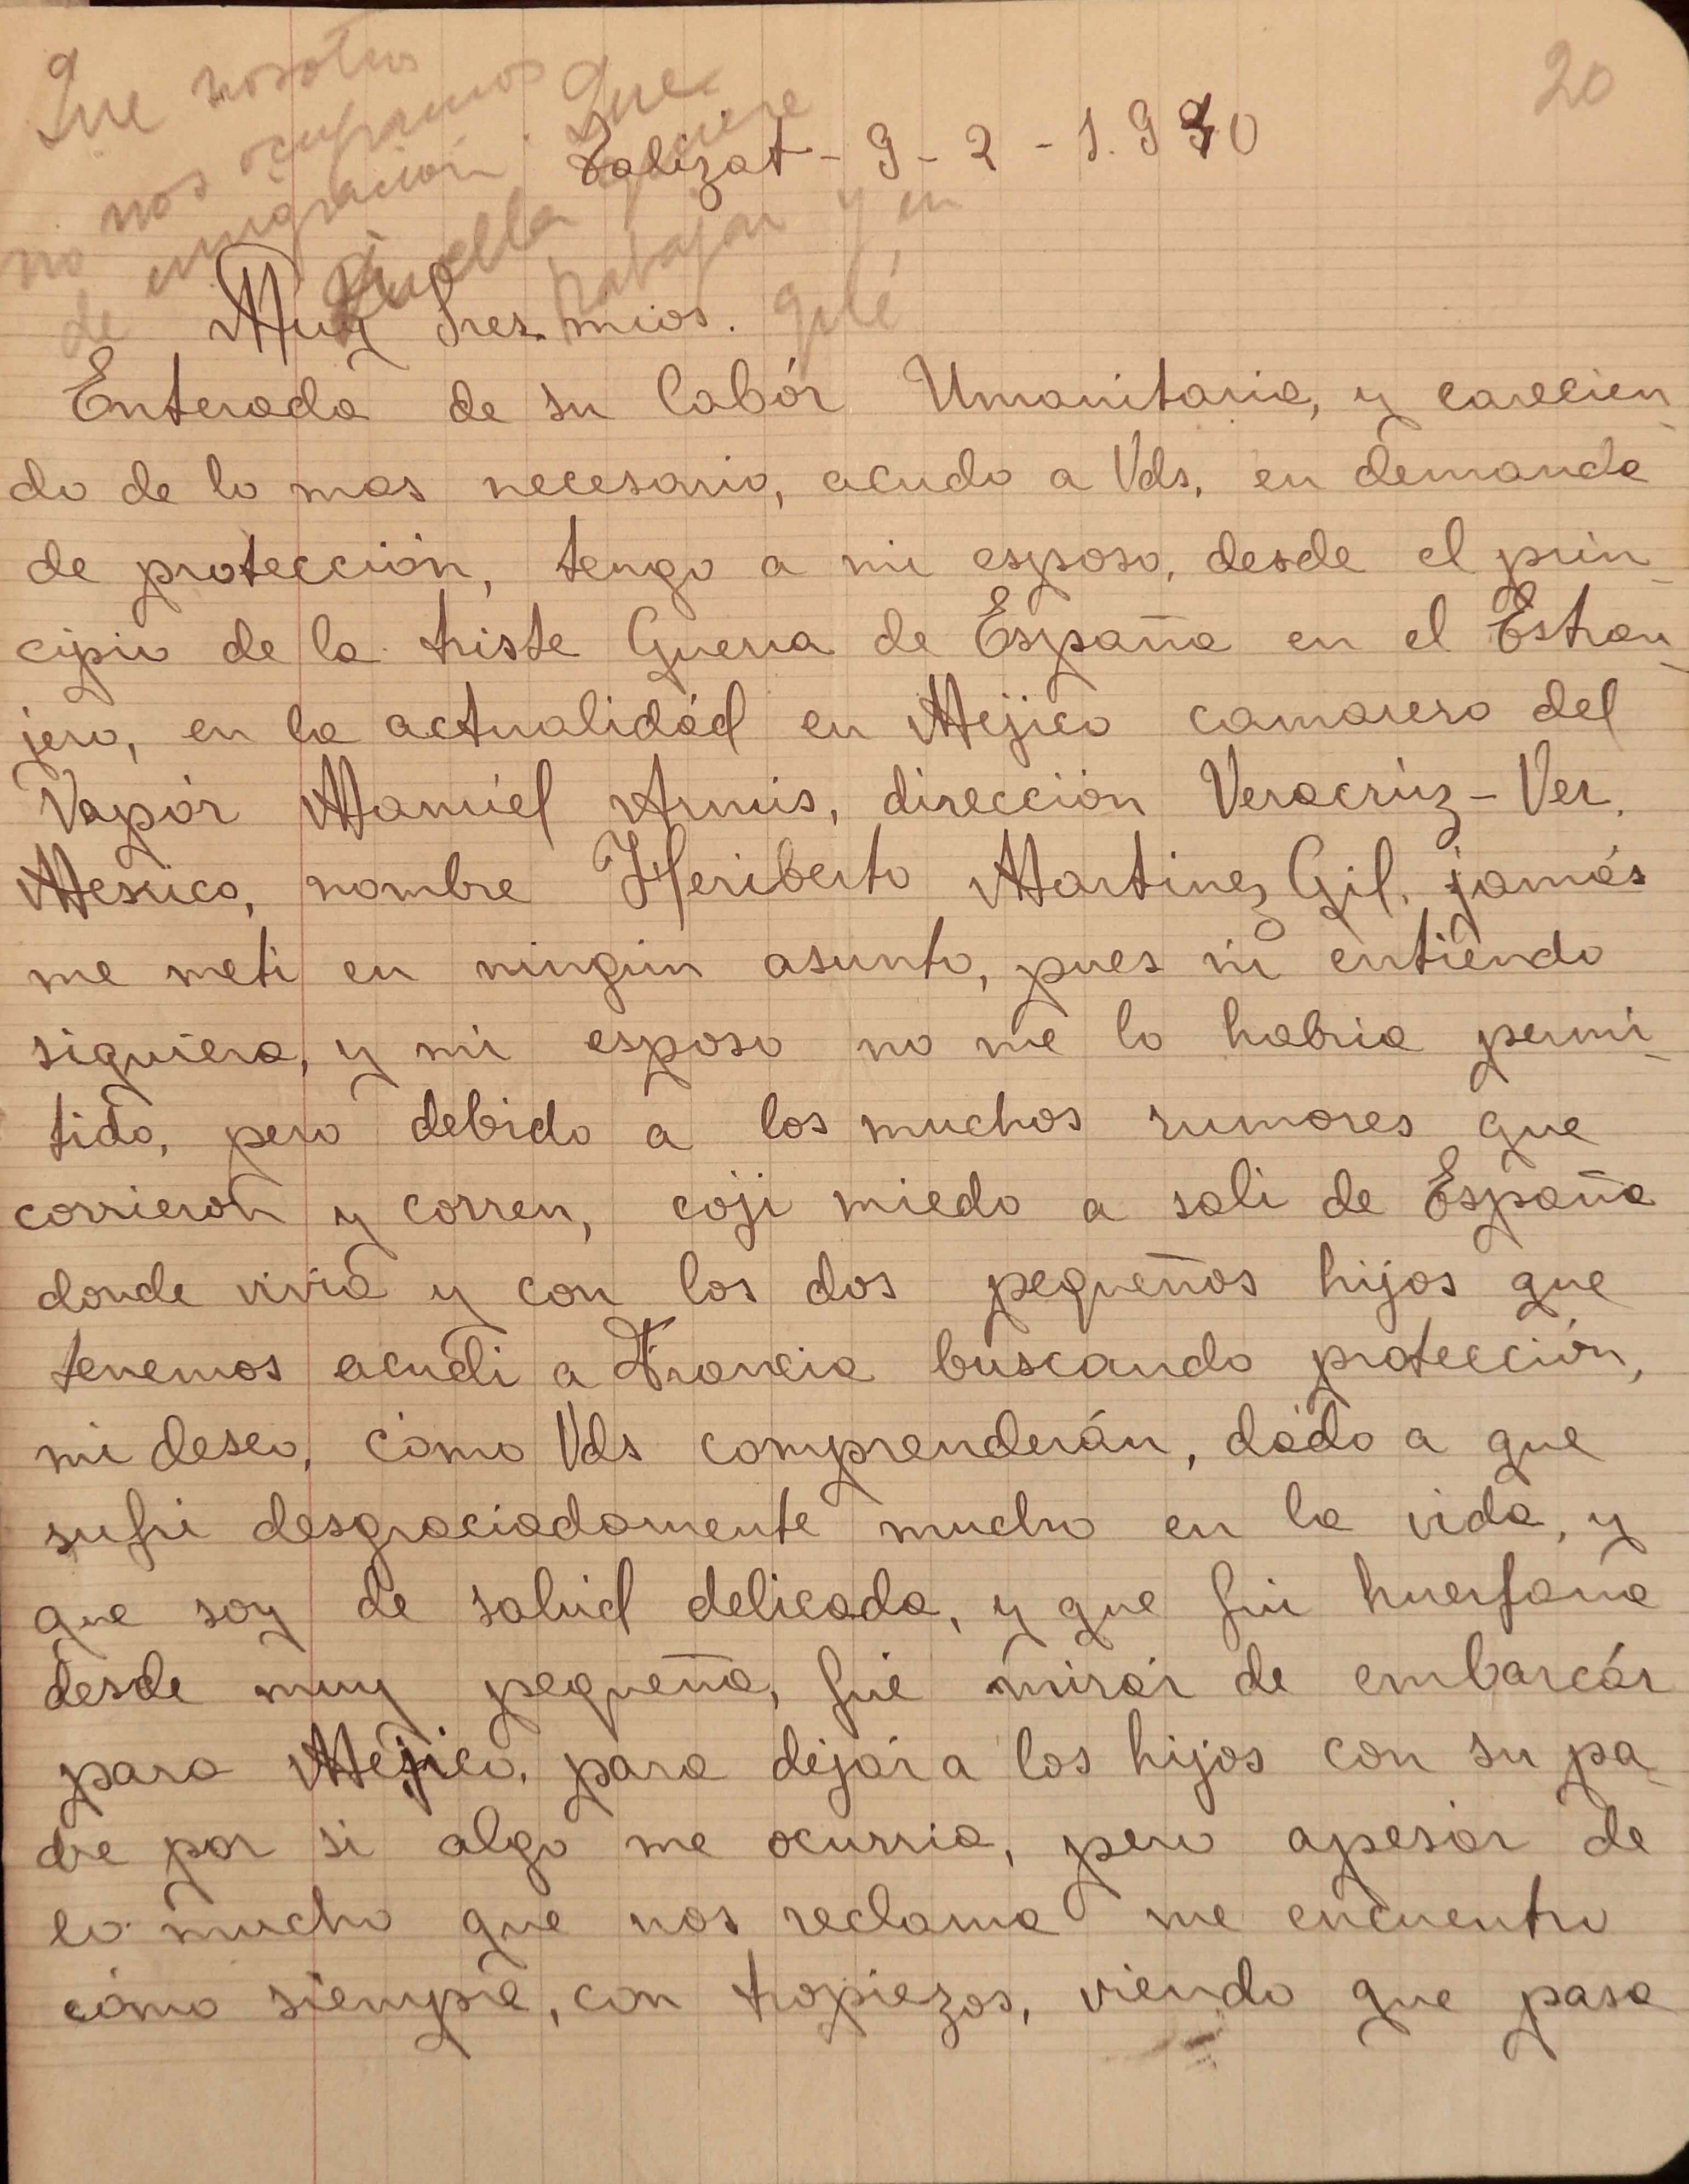 20
Que nosotros
no nos ocupamos
de emigración. Que
si ella quiere
trabajar y en
qué
Salizat - 9 - 2 - 1.940
Muy Sres mios.
Enterada de su labór Umanitaria, y carecien_
do de lo mas necesario, acudo a Vds, en demanda
de protección, tengo a mi esposo, desde el prin_
cipio de la triste Guerra de España en el Estran_
jero, en la actualidád en Mejico camarero del
Vapór Manuel Arnus, dirección Veracrúz - Ver.
Mexico, nombre Heriberto Martinez Gil, jamás
me meti en ningún asunto, pues ni entiendo
siquiera, y mi esposo no me lo habria permi_
tido, pero debido a los muchos rumores que
corrieron y corren, coji miedo a sali de España
donde vivia y con los dos pequeños hijos que
tenemos acudi a Francia buscando protección,
mi deseo, cómo Vds comprenderán, dádo a que
sufri desgraciadamente mucho en la vida, y
que soy de salúd delicada, y que fui huerfana
desde muy pequeña, fué mirár de embarcár
para Mejico, para dejár a los hijos con su pa_
dre por si algo me ocurria, pero apesár de
lo mucho que nos reclama me encuentro
cómo siempre, con tropiezos, viendo que pasa